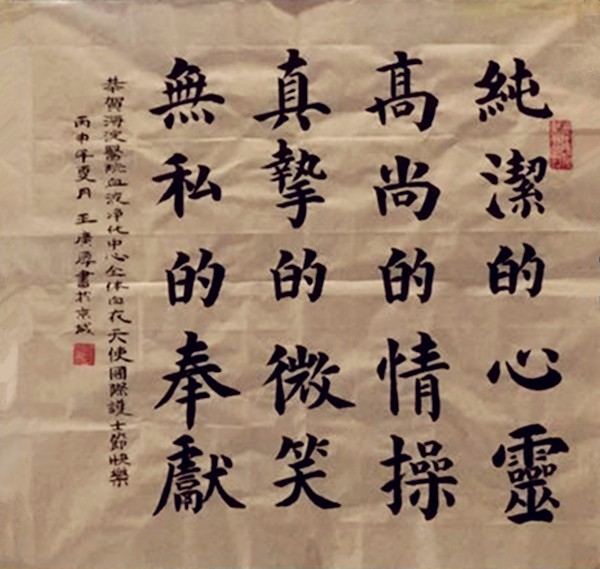 純潔的心靈
高尚的情操
真摯的微笑
無私的奉獻
恭賀海淀醫院血液净化中心全体白衣天使國際護士節快樂
丙申年夏月王庚彦書於京城